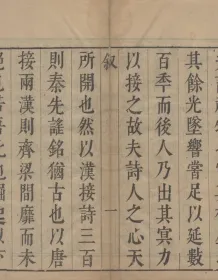 其餘光墜響嘗足以延數
百秊而後人乃出其冥力
以接之故夫詩人之心天
叙 一
所開也然以漢接詩三百
則秦先謠銘猶古也以唐
接兩漢則齊梁間靡而未